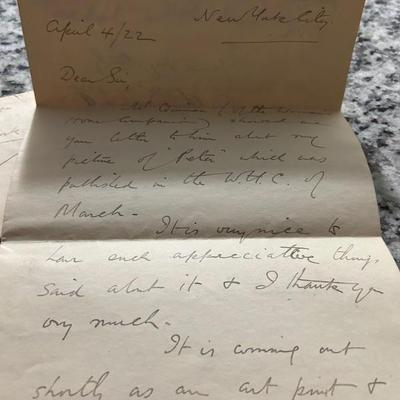 New York City.
April 4/22
Dear Sir,
of the Woman's
Home Companion) showed me
your letter to him abt my
picture of "Peter" which was
published in the W.H.C. of
March -
It is very nice to
hear such appreciative things
said abt it & I thank you
very much -
It is coming out
shortly as an art print &